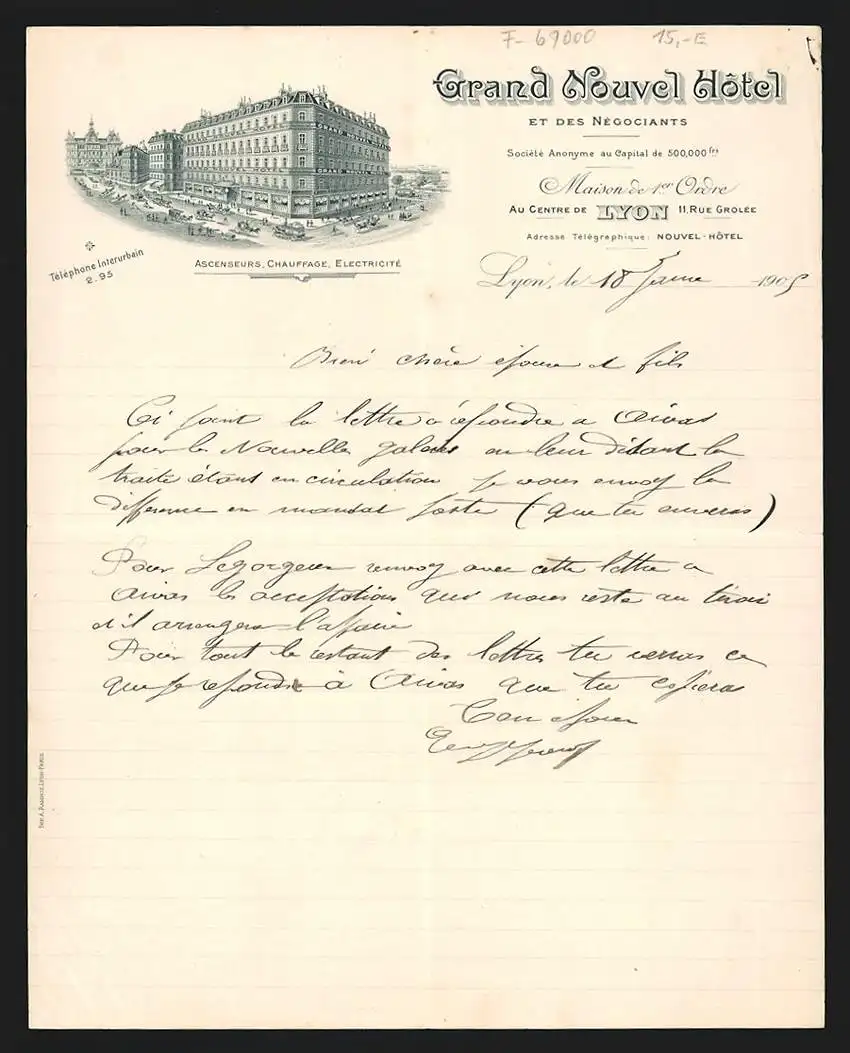 F- 69000 15,-E
Grand Nouvel Hôtel
ET DES NÉGOCIANTS
Société Anonyme au Capital de 500,000 frs
Maison de 1er Ordre
AU CENTRE DE LYON 11, RUE GROLÉE
Adresse Télégraphique: NOUVEL-HÔTEL
GRAND NOUVEL HOTEL
Téléphone Interurbain
2.95
ASCENSEURS, CHAUFFAGE, ELECTRICITÉ
Lyon, le 18 1905
chère épouse et fils
Ci joint la lettre a répondre a
pour les Nouvelles galeries en leur disant la
traite étant en circulation je vous envoy la
difference en mandat poste (que tu enverras)
Pour renvoy avec cette lettre a
les acceptations que nous reste au tiroir
et il arrangera l'affaire
Pour tout le restant des lettres tu verras ce
que je repondu à que tu copieras
Ton époux